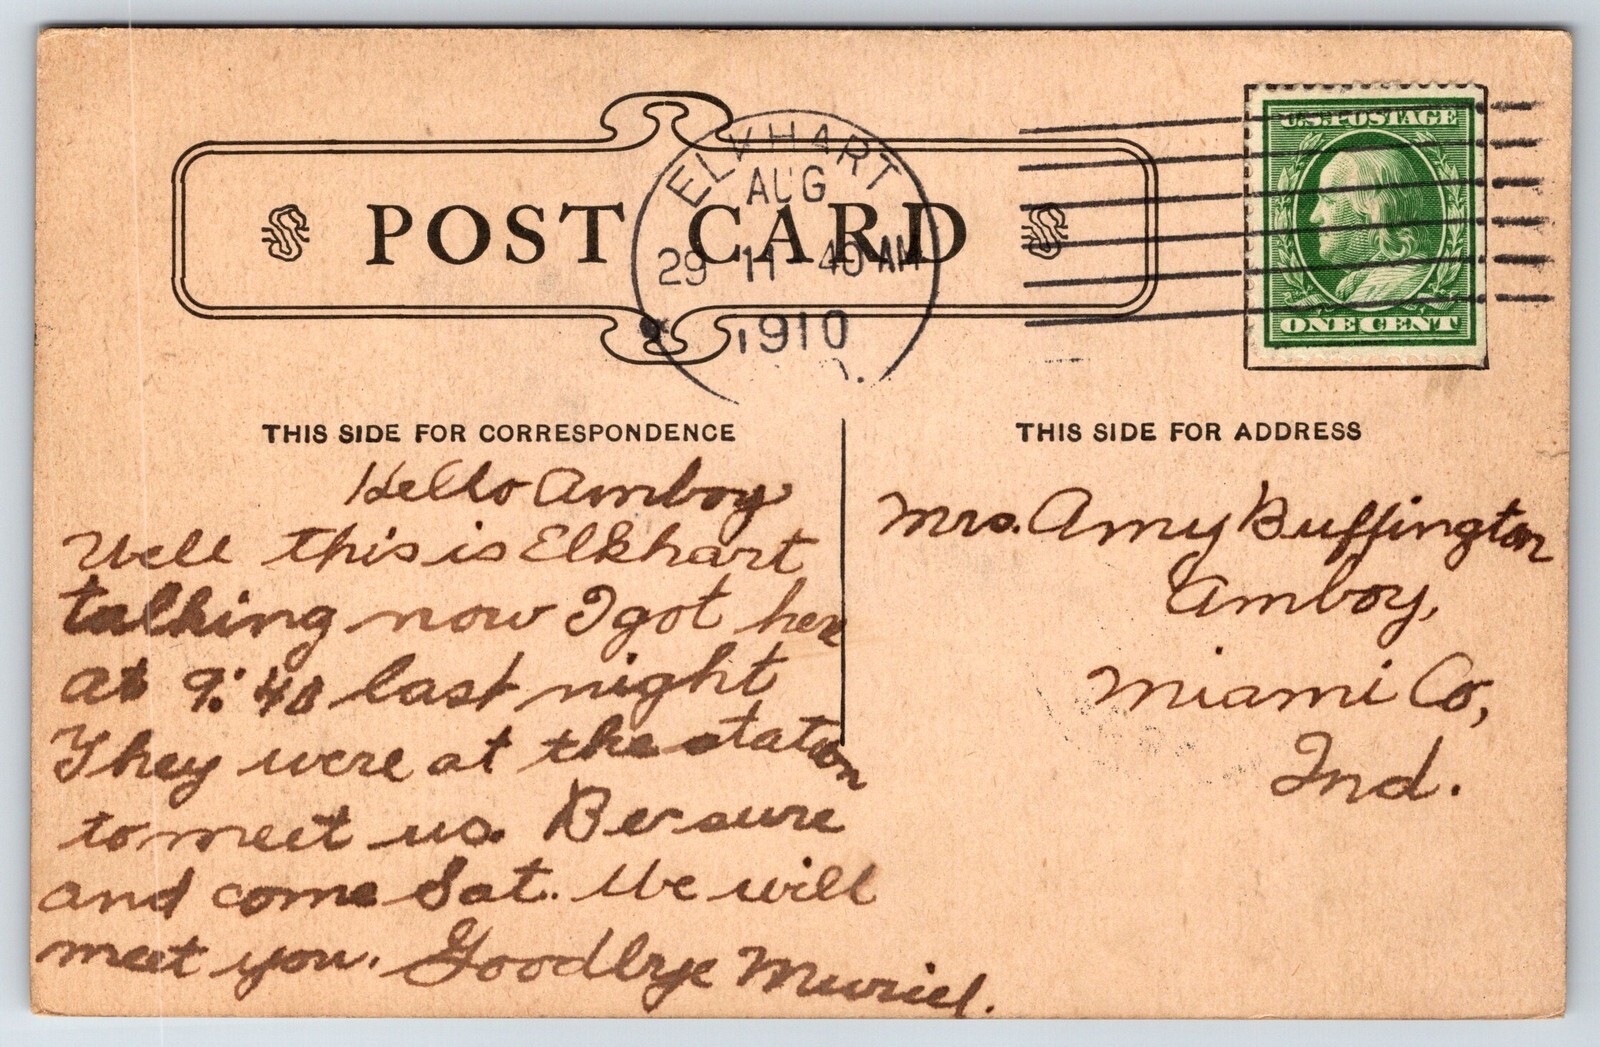 U.S. POSTAGE
ELKHART
AUG
29 11 40 AM
1910
POST CARD
ONE CENT
THIS SIDE FOR CORRESPONDENCE
THIS SIDE FOR ADDRESS
Hello Amboy
Well this is Elkhart
talking now I got here
at 9:40 last night
They were at the station
to meet us. Be sure
and come Sat. We will
meet you. Goodbye Muriel.
Mrs. Amy Buffington
Amboy,
Miami Co,
Ind.